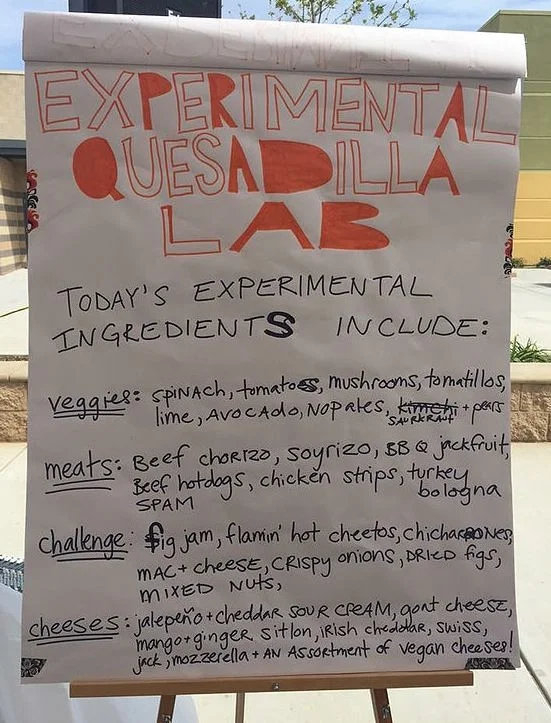 EXPERIMENTAL
QUESADILLA
LAB
TODAY'S EXPERIMENTAL
INGREDIENTS INCLUDE:
veggies: spiNACH, tomatoes, mushrooms, tomatillos,
lime, AVOCADO, NOPALES, kimchi + pears
SAURKRAUT
meats: Beef chorizo, soyrizo, BBQ jackfruit,
Beef hotdogs, chicken strips, turkey
bologna
SPAM
challenge: fig jam, flamin' hot cheetos, chicharrones,
mac + cheese, crispy onions, DRIED figs,
MIXED NUTS,
cheeses: jalepeño + cheddar SOUR CREAM, goat cheese,
mango + ginger stilton, IRISH cheddar, swiss,
jack, mozzerella + AN ASSORTMENT of vegan cheeses!